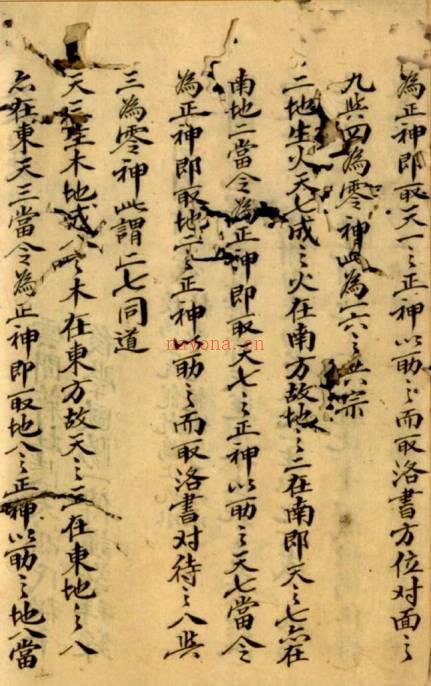 為正神即取天一之正神以助之而取洛書方位对面之
九與四為零神此為一六之共宗
二地生火天七成之火在南方故地之二在南即天之七亦在
南地二當令為正神即取天七之正神以助之天七當令
為正神即取地二之正神以助之而取洛書对待之八與
三為零神此謂二七同道
天三生木地成八之木在東方故天之三在東地之八
亦在東天三當令為正神即取地八之正神以助之地八當
nayona.cn